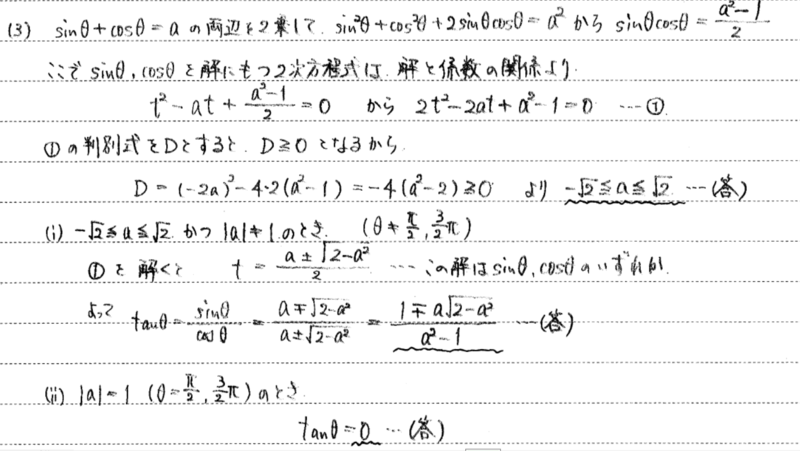 (3) sinθ + cosθ = a の両辺を2乗して、sin²θ + cos²θ + 2sinθcosθ = a² から sinθcosθ = (a²-1)/2
ここで sinθ, cosθ を解にもつ2次方程式は、解と係数の関係より
t² - at + (a²-1)/2 = 0 から 2t² - 2at + a² - 1 = 0 … ①
①の判別式をDとすると、D ≧ 0 となるから
D = (-2a)² - 4·2(a²-1) = -4(a²-2) ≧ 0 より -√2 ≦ a ≦ √2 …(答)
(i) -√2 ≦ a ≦ √2 かつ |a| ≠ 1 のとき (θ ≠ π/2, 3/2π)
①を解くと t = (a ± √(2-a²))/2 … この解は sinθ, cosθ のいずれか.
よって tanθ = sinθ/cosθ = (a ∓ √(2-a²))/(a ± √(2-a²)) = (1 ∓ a√(2-a²))/(a²-1) …(答)
(ii) |a| = 1 (θ = π/2, 3/2π) のとき
tanθ = 0 …(答)